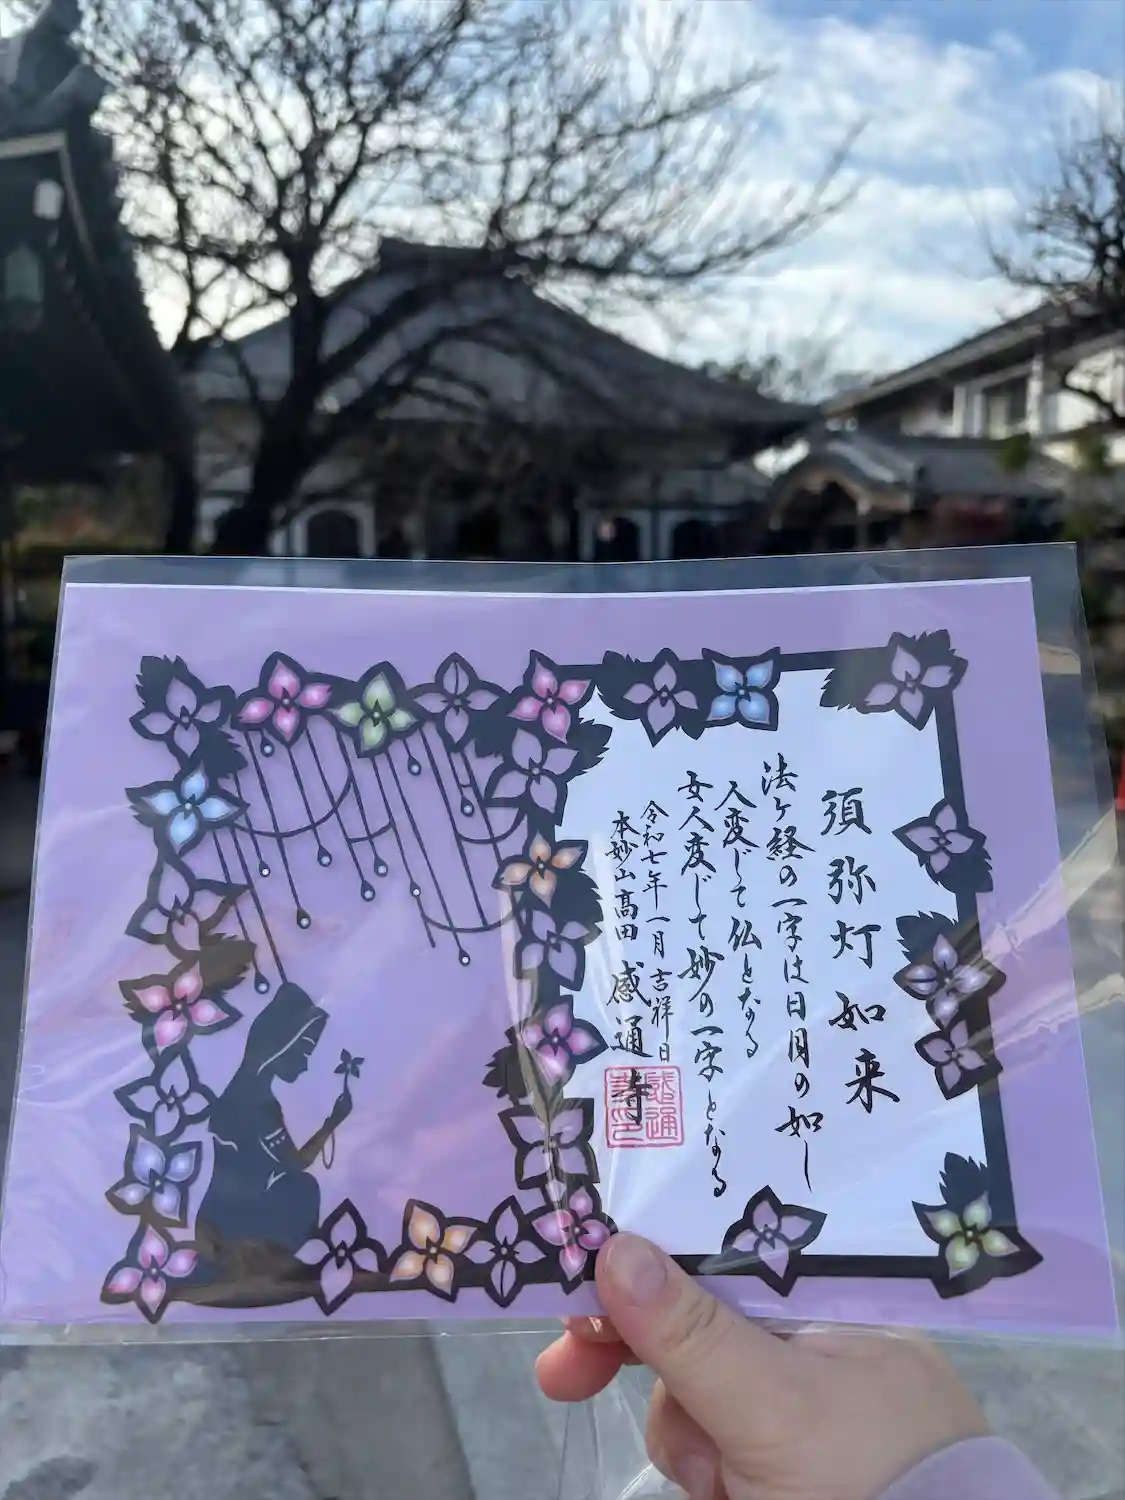 須弥灯如来
法ケ経の一字は日月の如し
人変じて仏となる
女人変じて妙の一字となる
令和七年一月吉祥日
本妙山高田感通寺
感通寺印